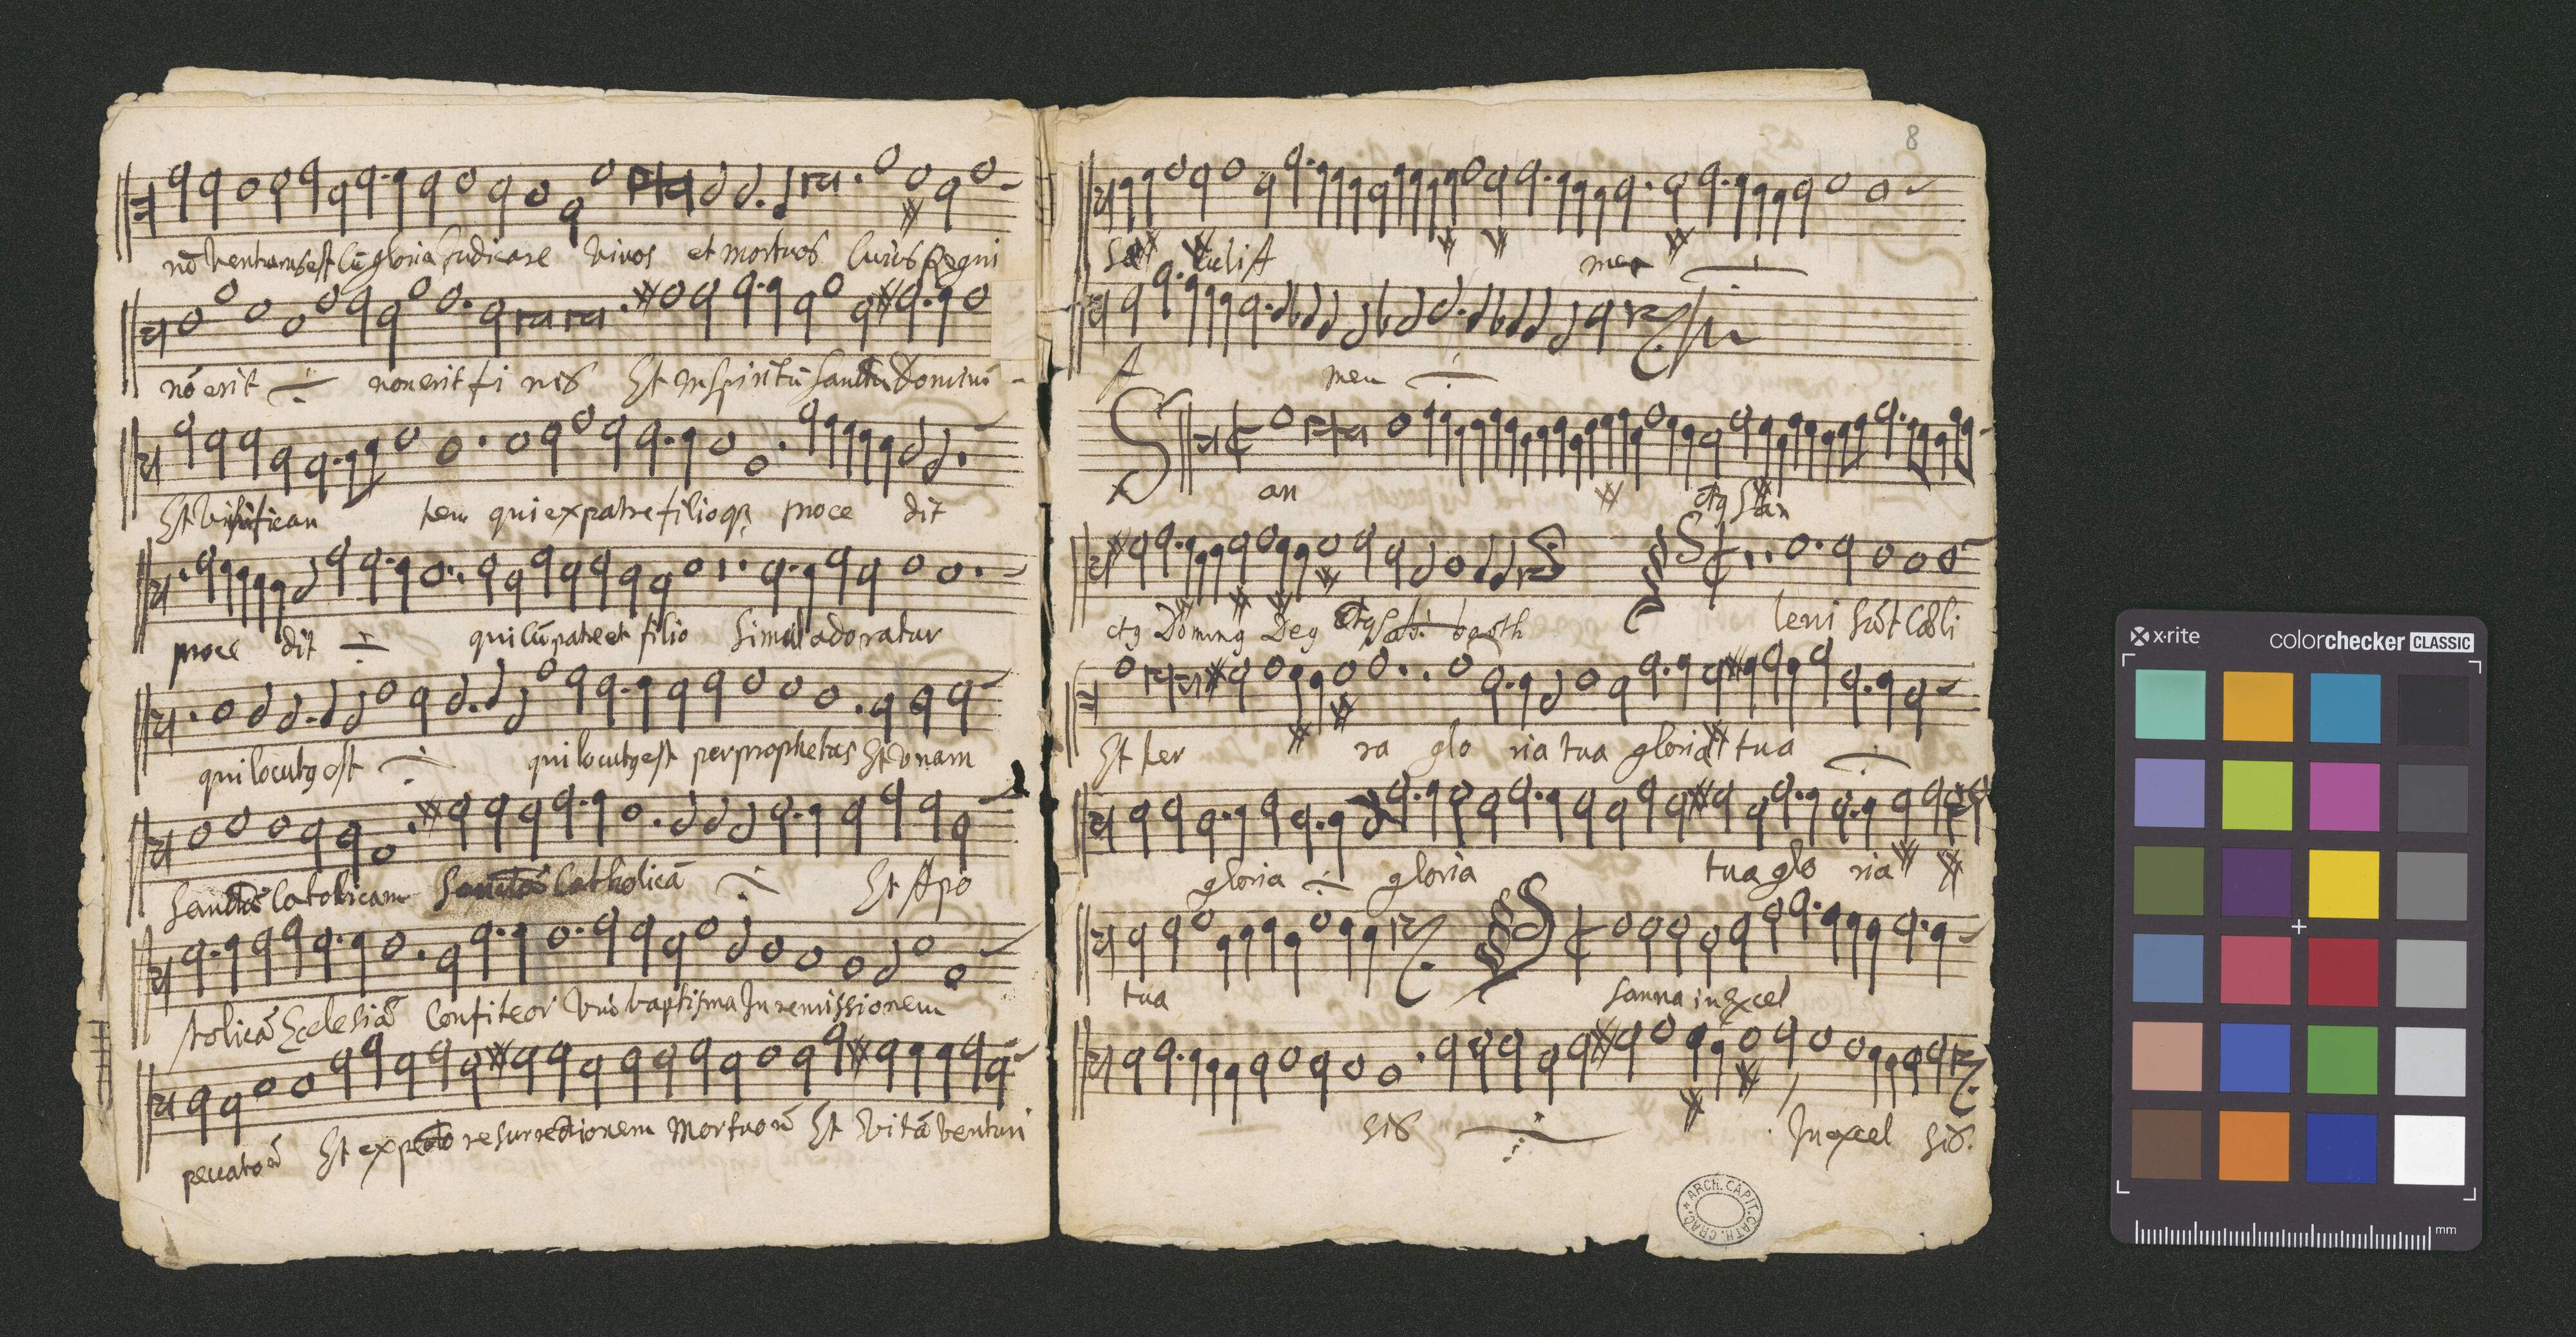 nō venturus est Cū gloria Judicare vivos et mortuos Cuius Regni
nō erit non erit fi nis Et in spiritū Sanctū Dominū
Et vivifican tem qui ex patre filioq̢ proce dit
proce dit qui cū patre et filio simul adoratur
qui locutꝯ est qui locutꝯ est per prophetas Et vnam
Sanctā Catolicam Sanctā Catholicā Et Apo
stolicā Ecclesiā Confiteor vnū baptisma In remissionem
peccatorū Et expecto resurrectionem Mortuorū Et vitā venturi
8
culi A men
A men
S an ctꝯ San
ctꝯ Dominꝯ Deꝯ Sab. baoth leni sūt Cœli
Et ter ra glo ria tua gloria tua
gloria gloria tua glo ria
tua sanna in excel
sis In excel sis.
ARCH. CAPIT. CATH. CRAC.
x·rite
colorchecker CLASSIC
mm